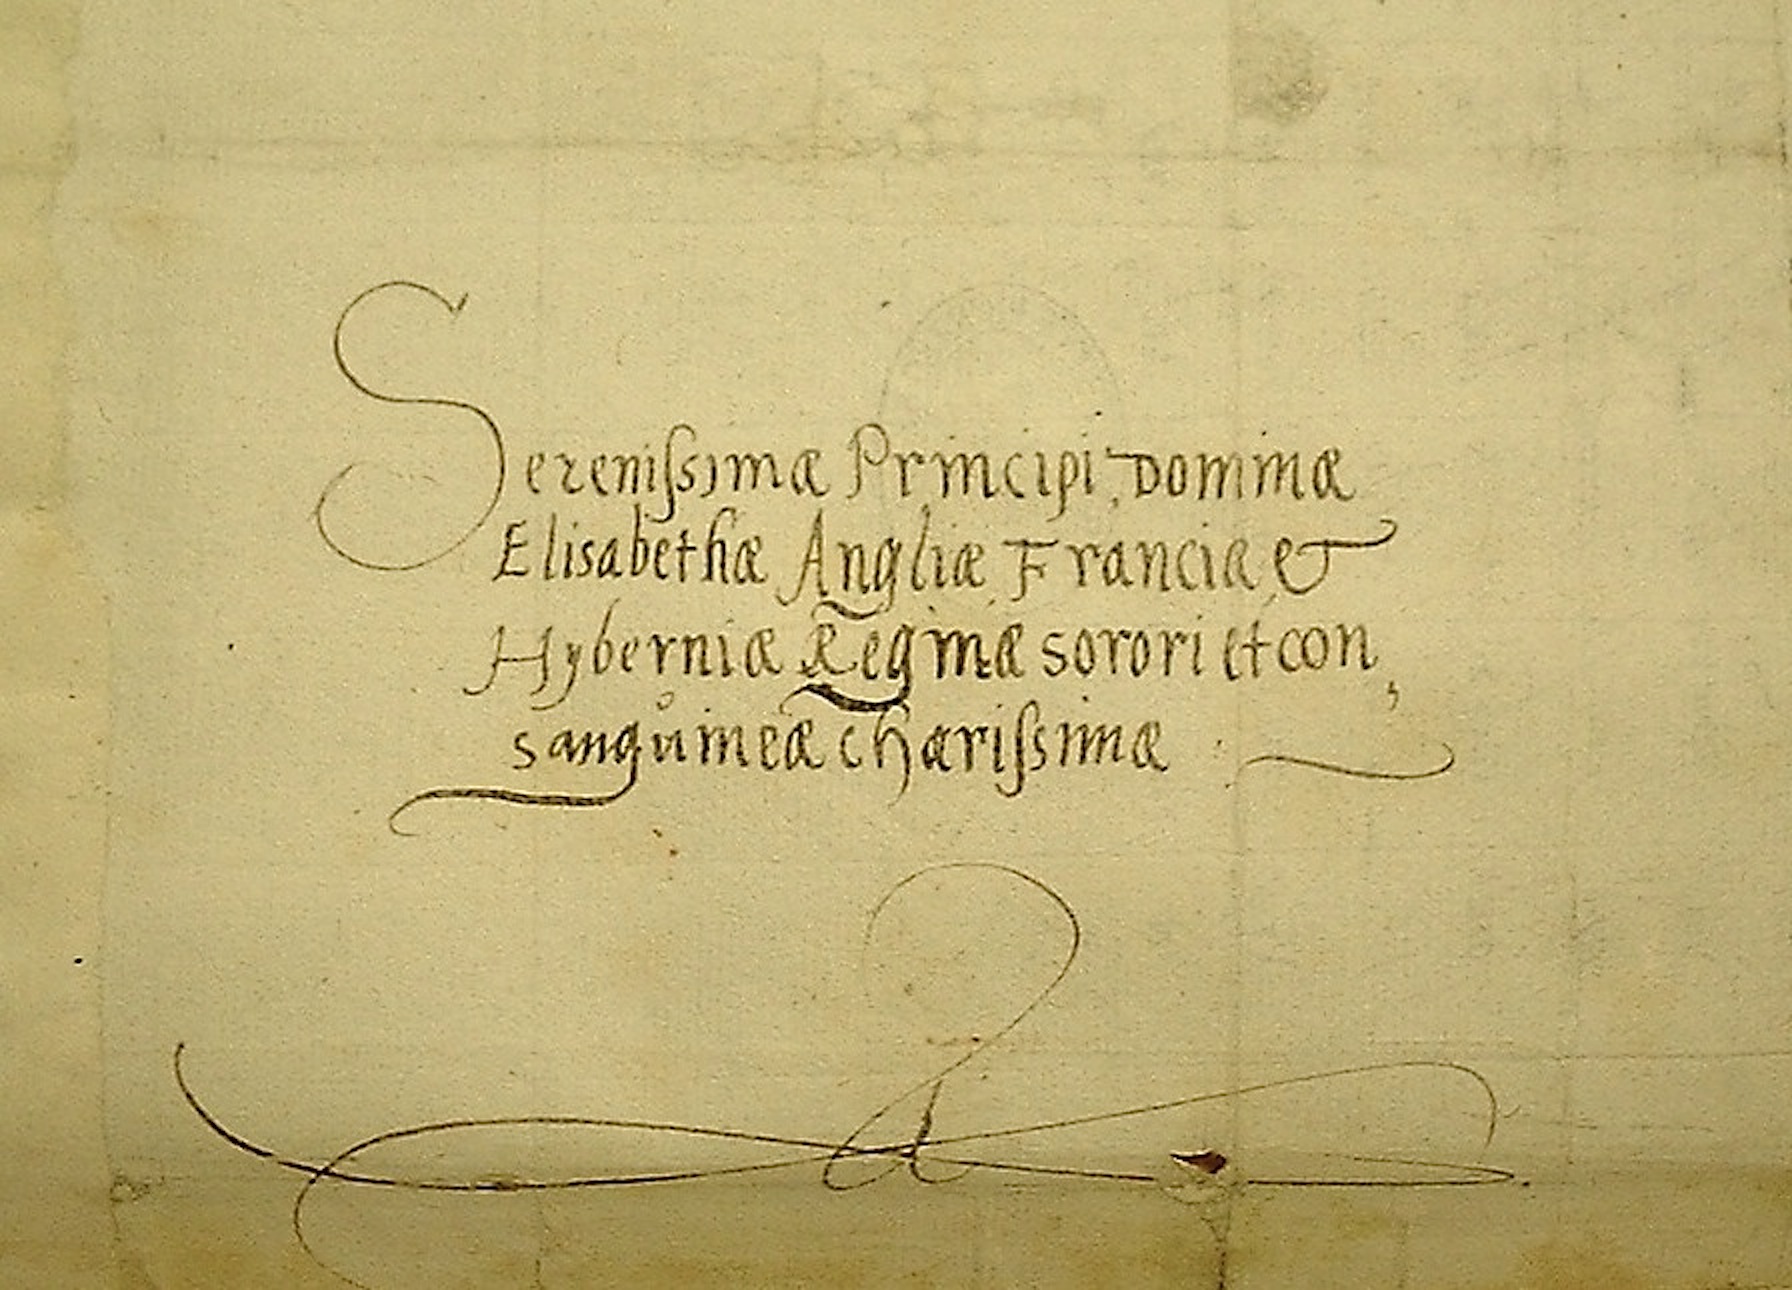 Serenissimæ Principi, Dominæ
Elisabethæ Angliæ Franciæ et
Hyberniæ Reginæ sorori et con,
sanguineæ charissimæ